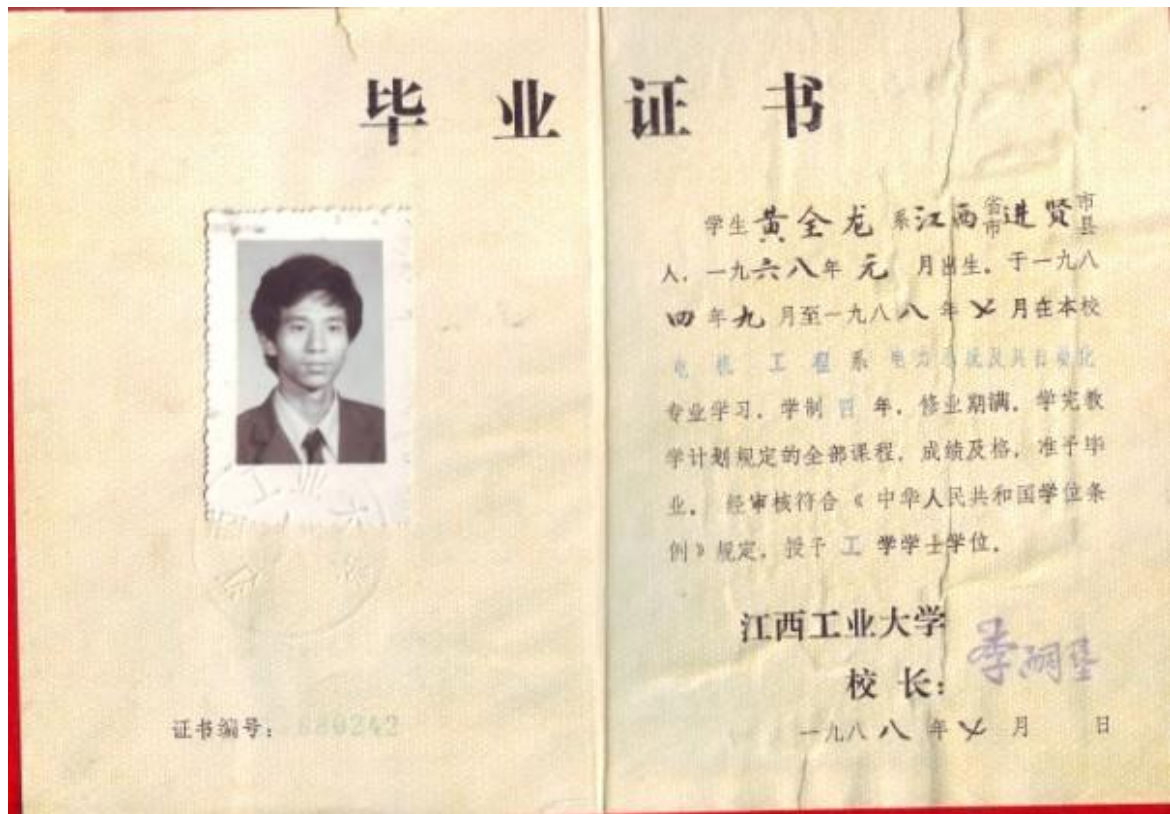 毕业证书
学生黄全龙系江西省市进贤市县
人，一九六八年元月出生，于一九八
四年九月至一九八八年七月在本校
电机工程系电力系统及其自动化
专业学习，学制四年，修业期满，学完教
学计划规定的全部课程，成绩及格，准予毕
业。经审核符合《中华人民共和国学位条
例》规定，授予工学学士学位。
江西工业大学
校长：
一九八八年七月 日
证书编号：880242